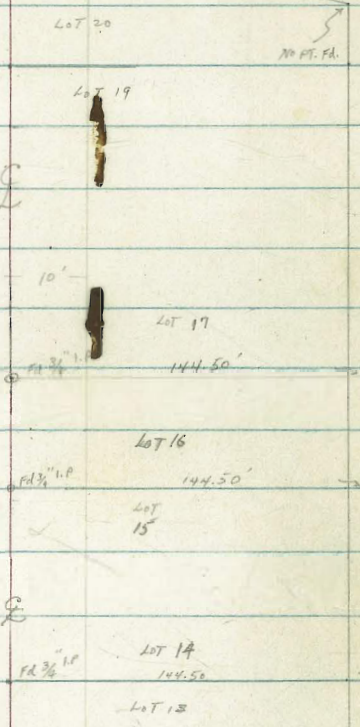 LOT 20
No PT. Fd.
LOT 19
℄
10'
LOT 17
Fd 3/4" I.P
144.50'
LOT 16
Fd 3/4" I.P
144.50'
LOT
15
℄
LOT 14
Fd 3/4" I.P
144.50
LOT 13